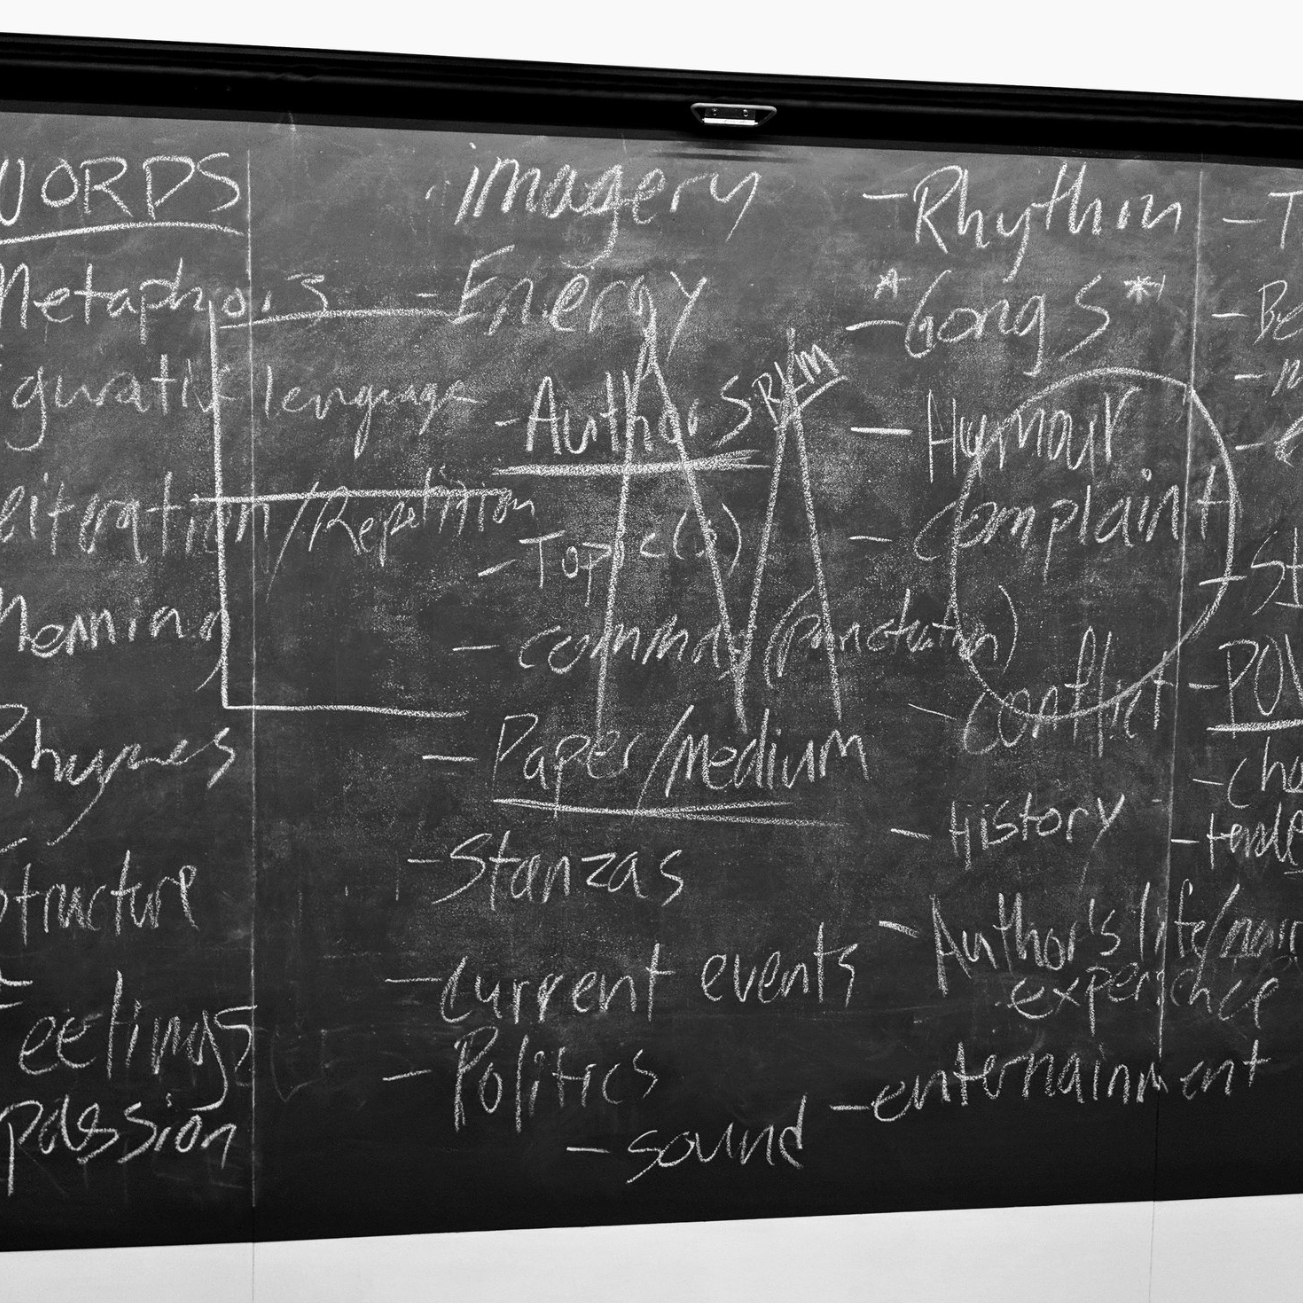 WORDS
Metaphors
figurative language
/Repetition
Meaning
Rhymes
Structure
Feelings
passion
imagery
-Energy
-Authors
-Topic(s)
- commas (punctuation)
- Paper/Medium
-Stanzas
-current events
- Politics
- sound
-Rhythm
* *
-Gong S
- Humour
- complaint
- conflict
- History
- Author's life/
experience
-enternainment
EMO
- POV